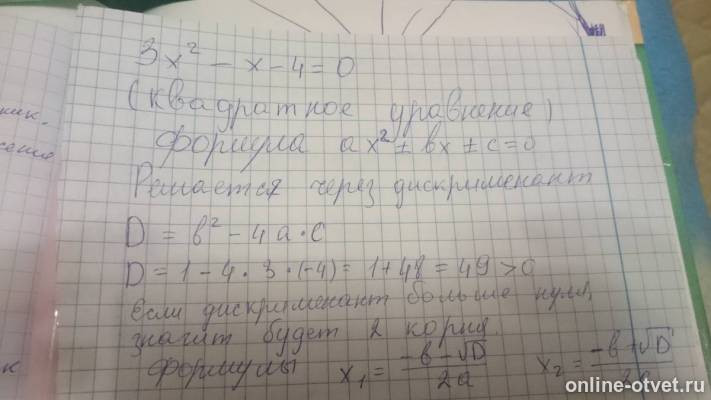 3x² - x - 4 = 0
(квадратное уравнение)
формула ax² ± bx ± c = 0
Решается через дискрименант
D = b² - 4a·c
D = 1 - 4·3·(-4) = 1 + 48 = 49 > 0
Если дискрименант больше нуля,
значит будет 2 корня
формулы x₁ = (-b - √D)/2a x₂ = (-b + √D)/2a
online-otvet.ru